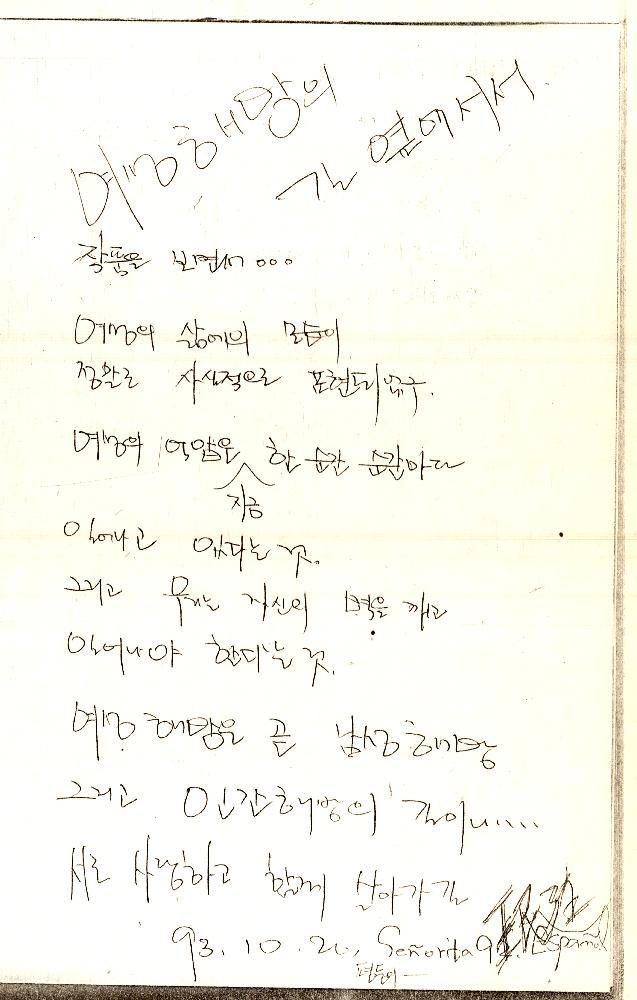 여성해방의
길 옆에서서.
작품을 보면서...
여성의 삶에의 모습이
정말로 사실적으로 표현되었구.
여성의 억압은 한 순간 순간마다
지금
일어나고 있다는 것.
그리고 우리는 자신의 벽을 깨고
일어나야 한다는 것.
여성해방은 곧 남성해방
그리고 인간해방의 길이니.....
서로 사랑하고 함께 살아가길
93. 10. 20, Señorita 9 Español